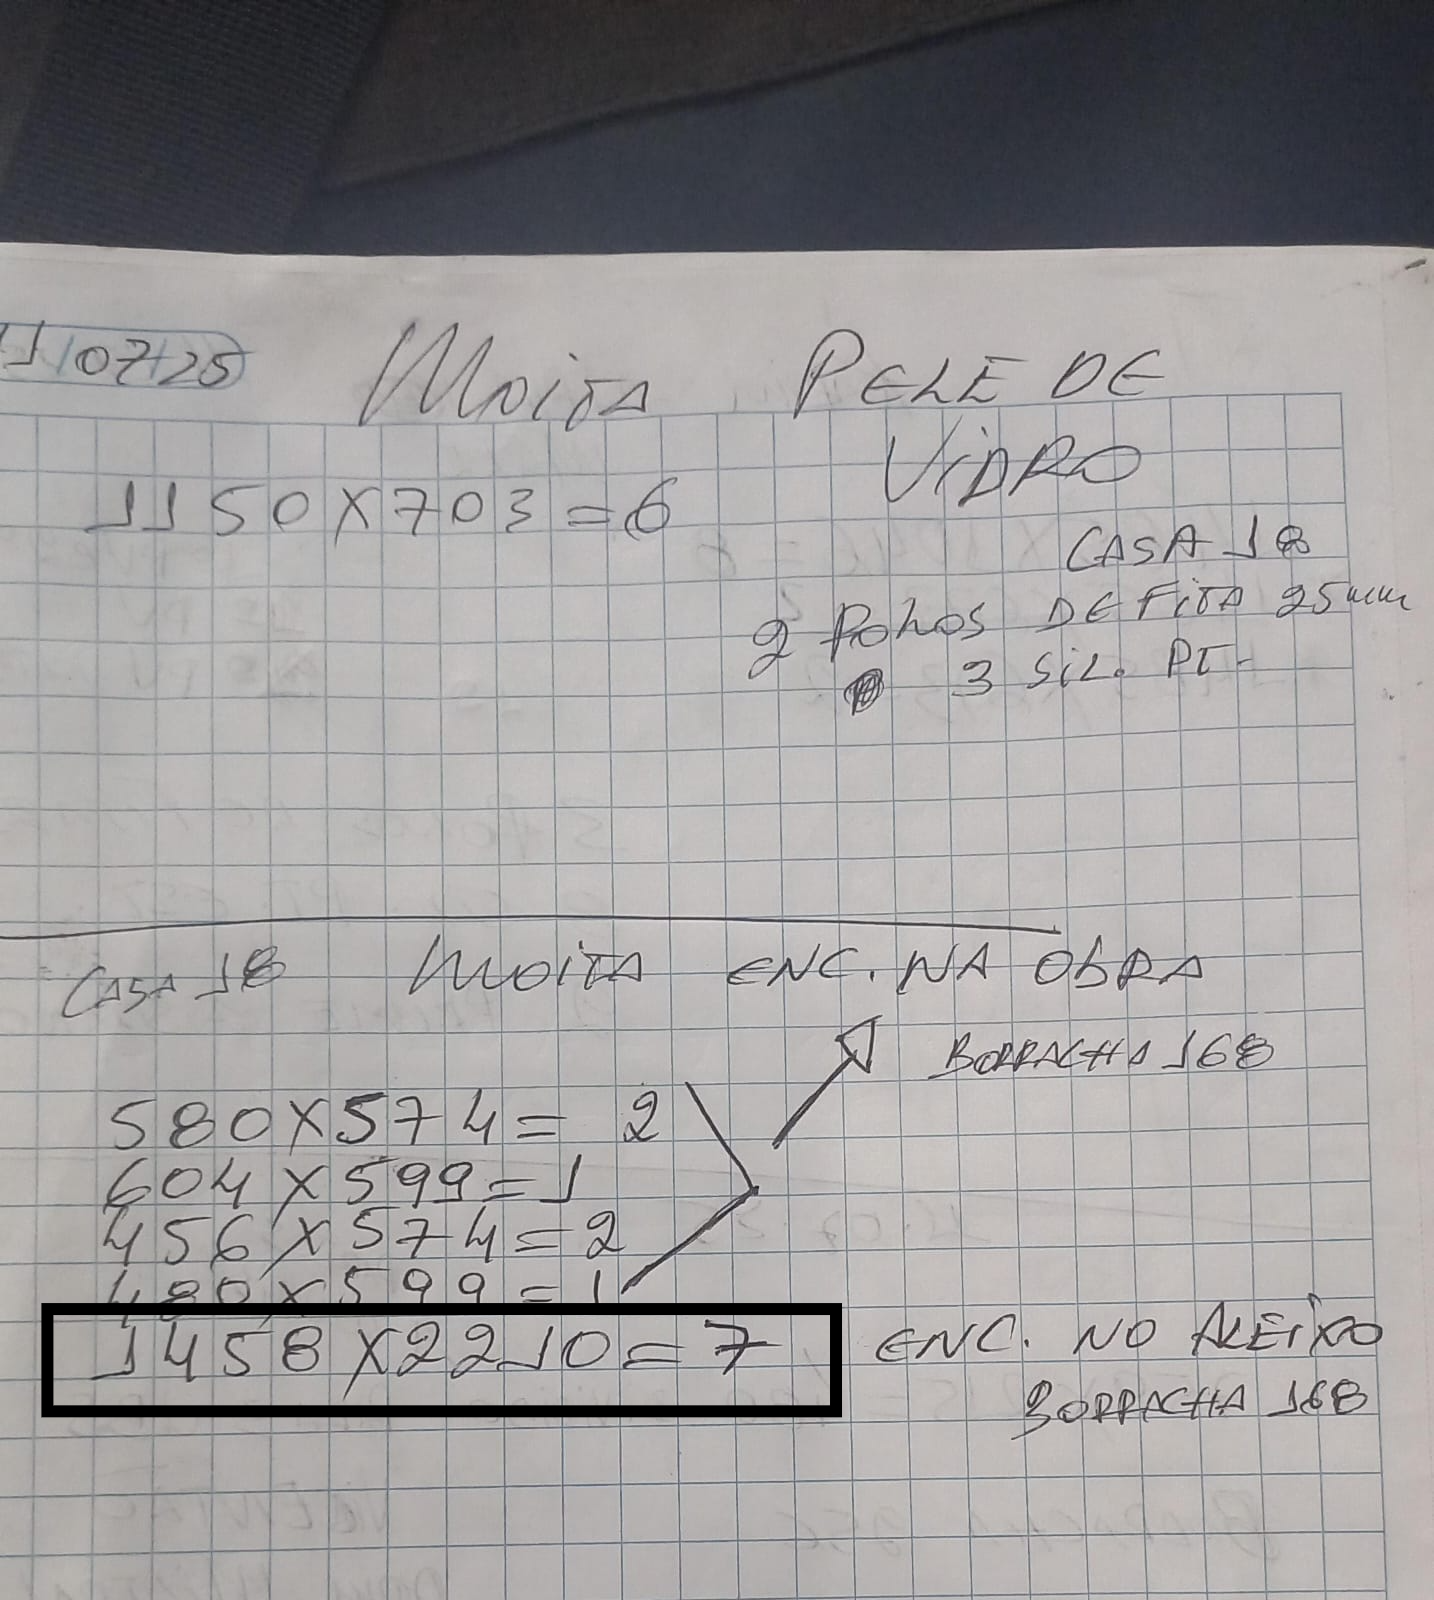 11/07/25 Moita PELE DE
VIDRO
1150X703=6
CASA 18
2 Rolos DE FITA 25mm
3 SIL. PT.
CASA 18 MOITA ENC. NA ObRA
BORRACHA 168
580X574= 2
604X599=1
456X574=2
480X599=1
1458X2210=7 ENC. NO ALEIXO
BORRACHA 168